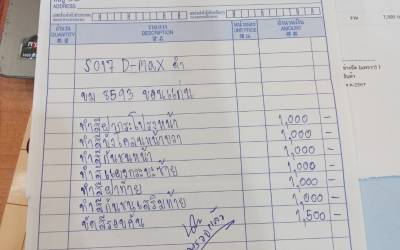 ADDRESS
จำนวน รายการ หน่วยละ จำนวนเงิน
QUANTITY DESCRIPTION UNIT PRICE AMOUNT
รถ D-max ดำ
ขม 8593 ขอนแก่น
ทำสีฝากระโปรงหน้า 1,000 -
ทำสีบังโคลนหน้าขวา 1,000 -
ทำสีกันชนหน้า 1,000 -
ทำสีแผงกระบะซ้าย 1,000 -
ทำสีฝาท้าย 1,000 -
ทำสีกันชนเสริมท้าย 1,000 -
ขัดสีรอบคัน 1,500 -